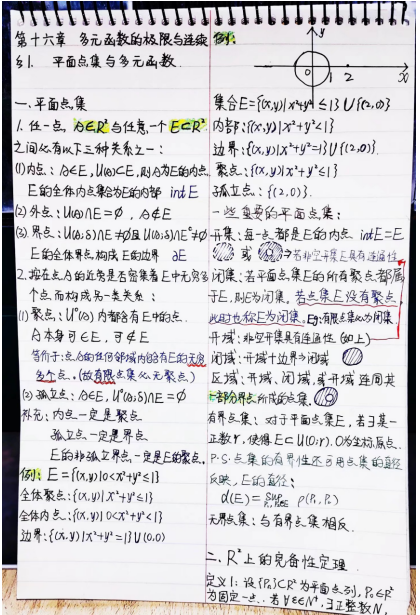 第十六章 多元函数的极限与连续
§1. 平面点集与多元函数.
一、平面点集
1. 任一点 A∈R² 与任意一个 E⊂R²
之间必有以下三种关系之一:
(1) 内点: A∈E, U(A)⊂E, 则A为E的内点
E的全体内点集合为E的内部 intE
(2) 外点: U(A)∩E=∅, A∉E
(3) 界点: U(A;δ)∩E≠∅且U(A;δ)∩Eᶜ≠∅
E的全体界点,构成E的边界 ∂E
2. 按在点A的近旁是否密集着E中无穷多
个点而构成另一类关系:
(1) 聚点: U°(A) 内都含有E中的点.
A本身可∈E, 可∉E
等价于: 点A的任何邻域内包含有E的无穷
多个点. (故有限点集必无聚点)
(2) 孤立点: A∈E, U°(A,δ)∩E=∅
补充: 内点一定是聚点
孤立点一定是界点
E的非孤立界点一定是E的聚点.
例: E={(x,y)|0<x²+y²<1}
全体聚点: {(x,y)|x²+y²≤1}
全体内点: {(x,y)|0<x²+y²<1}
边界: {(x,y)|x²+y²=1}∪(0,0)
例:
y
0 1 2 x
集合E={(x,y)|x²+y²≤1}∪{(2,0)}
内部: {(x,y)|x²+y²<1}
边界: {(x,y)|x²+y²=1}∪{(2,0)}.
聚点: {(x,y)|x²+y²≤1}
孤立点: {(2,0)}.
一些重要的平面点集:
开集: 每一点都是E的内点. intE=E.
或 ⇒若非空开集E具有连通性
闭集: 若平面点集E的所有聚点都属
于E, 则E为闭集. 若点集E没有聚点
此时也称E为闭集. Eg:有限点集必为闭集
开域: 非空开集具有连通性 (如上)
闭域: 开域+边界⇒闭域
区域: 开域、闭域, 或开域连同其
一部分界点所成的点集.
有界点集: 对于平面点集E, 若∃某一
正数r, 使得E⊂U(0;r), O为坐标原点.
P.S. 点集的有界性还可用点集的直径
反映, E的直径:
d(E)=sup ρ(P₁,P₂)
P₁,P₂∈E
无界点集: 与有界点集相反.
二、R²上的完备性定理.
定义1: 设{Pₙ}⊂R²为平面点列, P₀∈R²
为固定一点. 若∀ε∈N⁺, ∃正整数N,